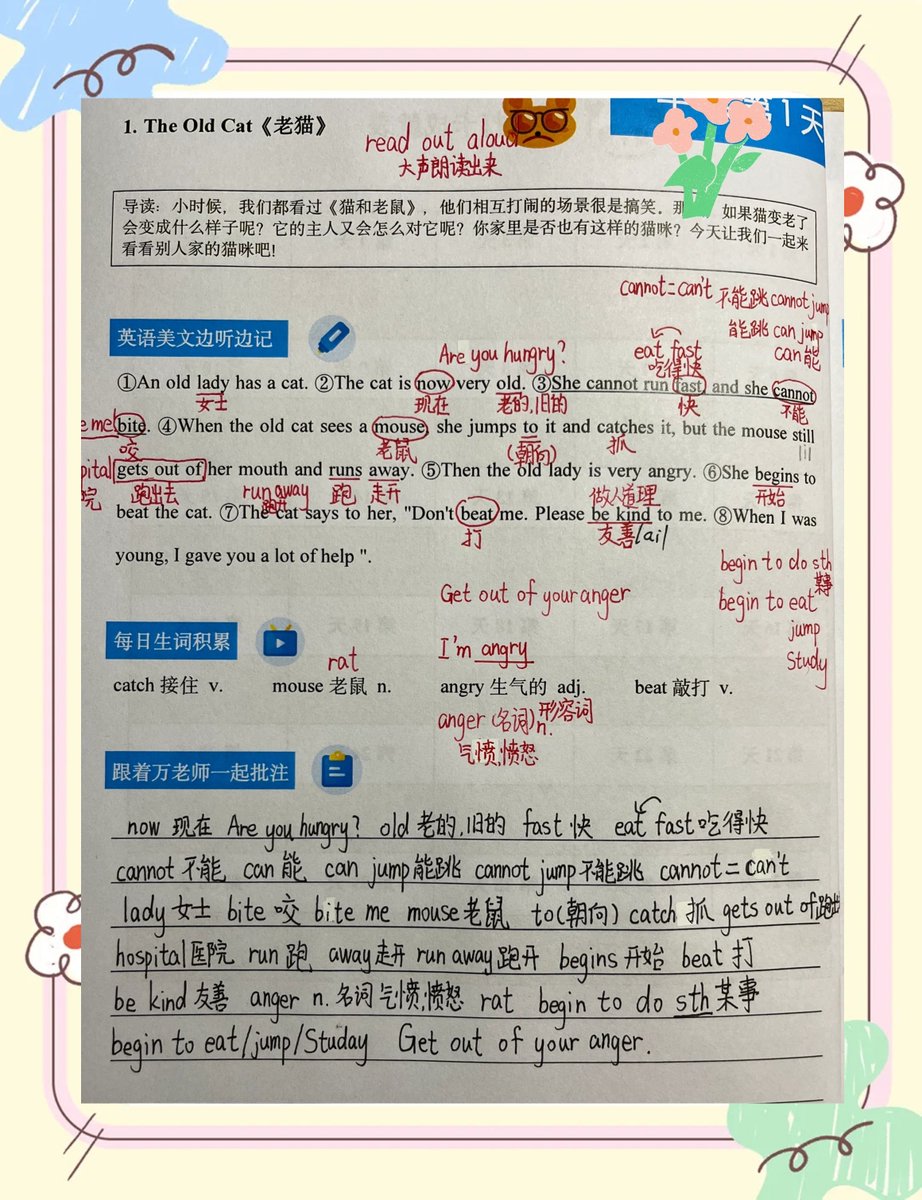 1. The Old Cat《老猫》
read out aloud
大声朗读出来
导读：小时候，我们都看过《猫和老鼠》，他们相互打闹的场景很是搞笑。那 如果猫变老了
会变成什么样子呢？它的主人又会怎么对它呢？你家里是否也有这样的猫咪？今天让我们一起来
看看别人家的猫咪吧！
cannot=can't 不能跳 cannot jump
能跳 can jump
can 能
英语美文边听边记
Are you hungry?
eat fast
吃得快
①An old lady has a cat. ②The cat is now very old. ③She cannot run fast and she cannot
女士 现在 老的,旧的 快 不能
e me bite. ④When the old cat sees a mouse, she jumps to it and catches it, but the mouse still
咬 老鼠 (朝向) 抓
pital gets out of her mouth and runs away. ⑤Then the old lady is very angry. ⑥She begins to
院 跑出去 run away 跑开 跑 走开 做人道理 开始
beat the cat. ⑦The cat says to her, "Don't beat me. Please be kind to me. ⑧When I was
打 友善
young, I gave you a lot of help ".
begin to do sth
某事
Get out of your anger
begin to eat
jump
Study
每日生词积累
I'm angry
rat
catch 接住 v. mouse 老鼠 n. angry 生气的 adj. beat 敲打 v.
形容词
anger (名词) n.
气愤,愤怒
跟着万老师一起批注
now 现在 Are you hungry? old 老的,旧的 fast 快 eat fast 吃得快
cannot 不能 can 能 can jump 能跳 cannot jump 不能跳 cannot = can't
lady 女士 bite 咬 bite me mouse 老鼠 to(朝向) catch 抓 gets out of 跑出
hospital 医院 run 跑 away 走开 run away 跑开 begins 开始 beat 打
be kind 友善 anger n. 名词 气愤,愤怒 rat begin to do sth 某事
begin to eat/jump/Studay Get out of your anger.